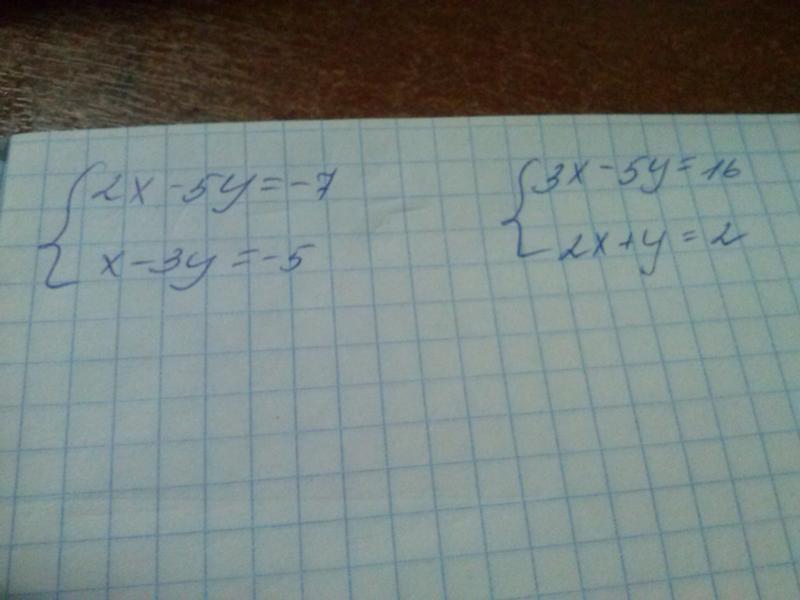 {2x-5y=-7
x-3y=-5
{3x-5y=16
2x+y=2